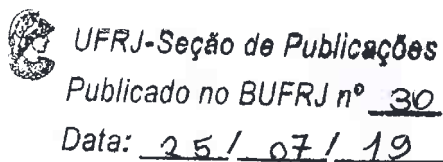 UFRJ-Seção de Publicações
Publicado no BUFRJ nº 30
Data: 25/ 07/ 19